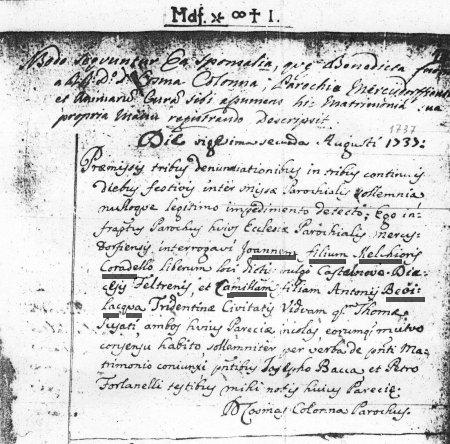 Mdf. ⚹ ∞ † I.
Modo sequuntur Ea Sponsalia, quę Benedicta
ab Ad: D. D. Cosma Colonna; Parochia Mercurdorffiensi
et Animarū Curā sibi assumens his Matrimoniā sua
propria Manu registrando Descripsit
1737
Die vigesima secunda Augusti 1737:
Prœmissis tribus denuntiationibus in tribus continuis
Diebus festivis inter missæ Parochialis sollemnia
nulloque legitimo impedimento detecto; Ego in-
fraptus Parochus huius Ecclesiæ Parochialis Mercur-
dorfiensis interrogavi Joannem filium Melchioris
Coradello liberum loci dicti vulgo Castelnove Diæ-
cesis Feltrensis, et Camillam filiam Antonij Bevi-
lacqua Tridentinæ Civitatis Viduam q. Thomæ
ambos huius Pareciæ eorumq; mutuo
consensu habito, sollemniter per verba de pñti Ma-
trimonio coniunxi pñtibus Josepho Bacca et Petro
Forlanelli testibus mihi notis huius Pareciæ.
D Cosmas Colonna Parochus.